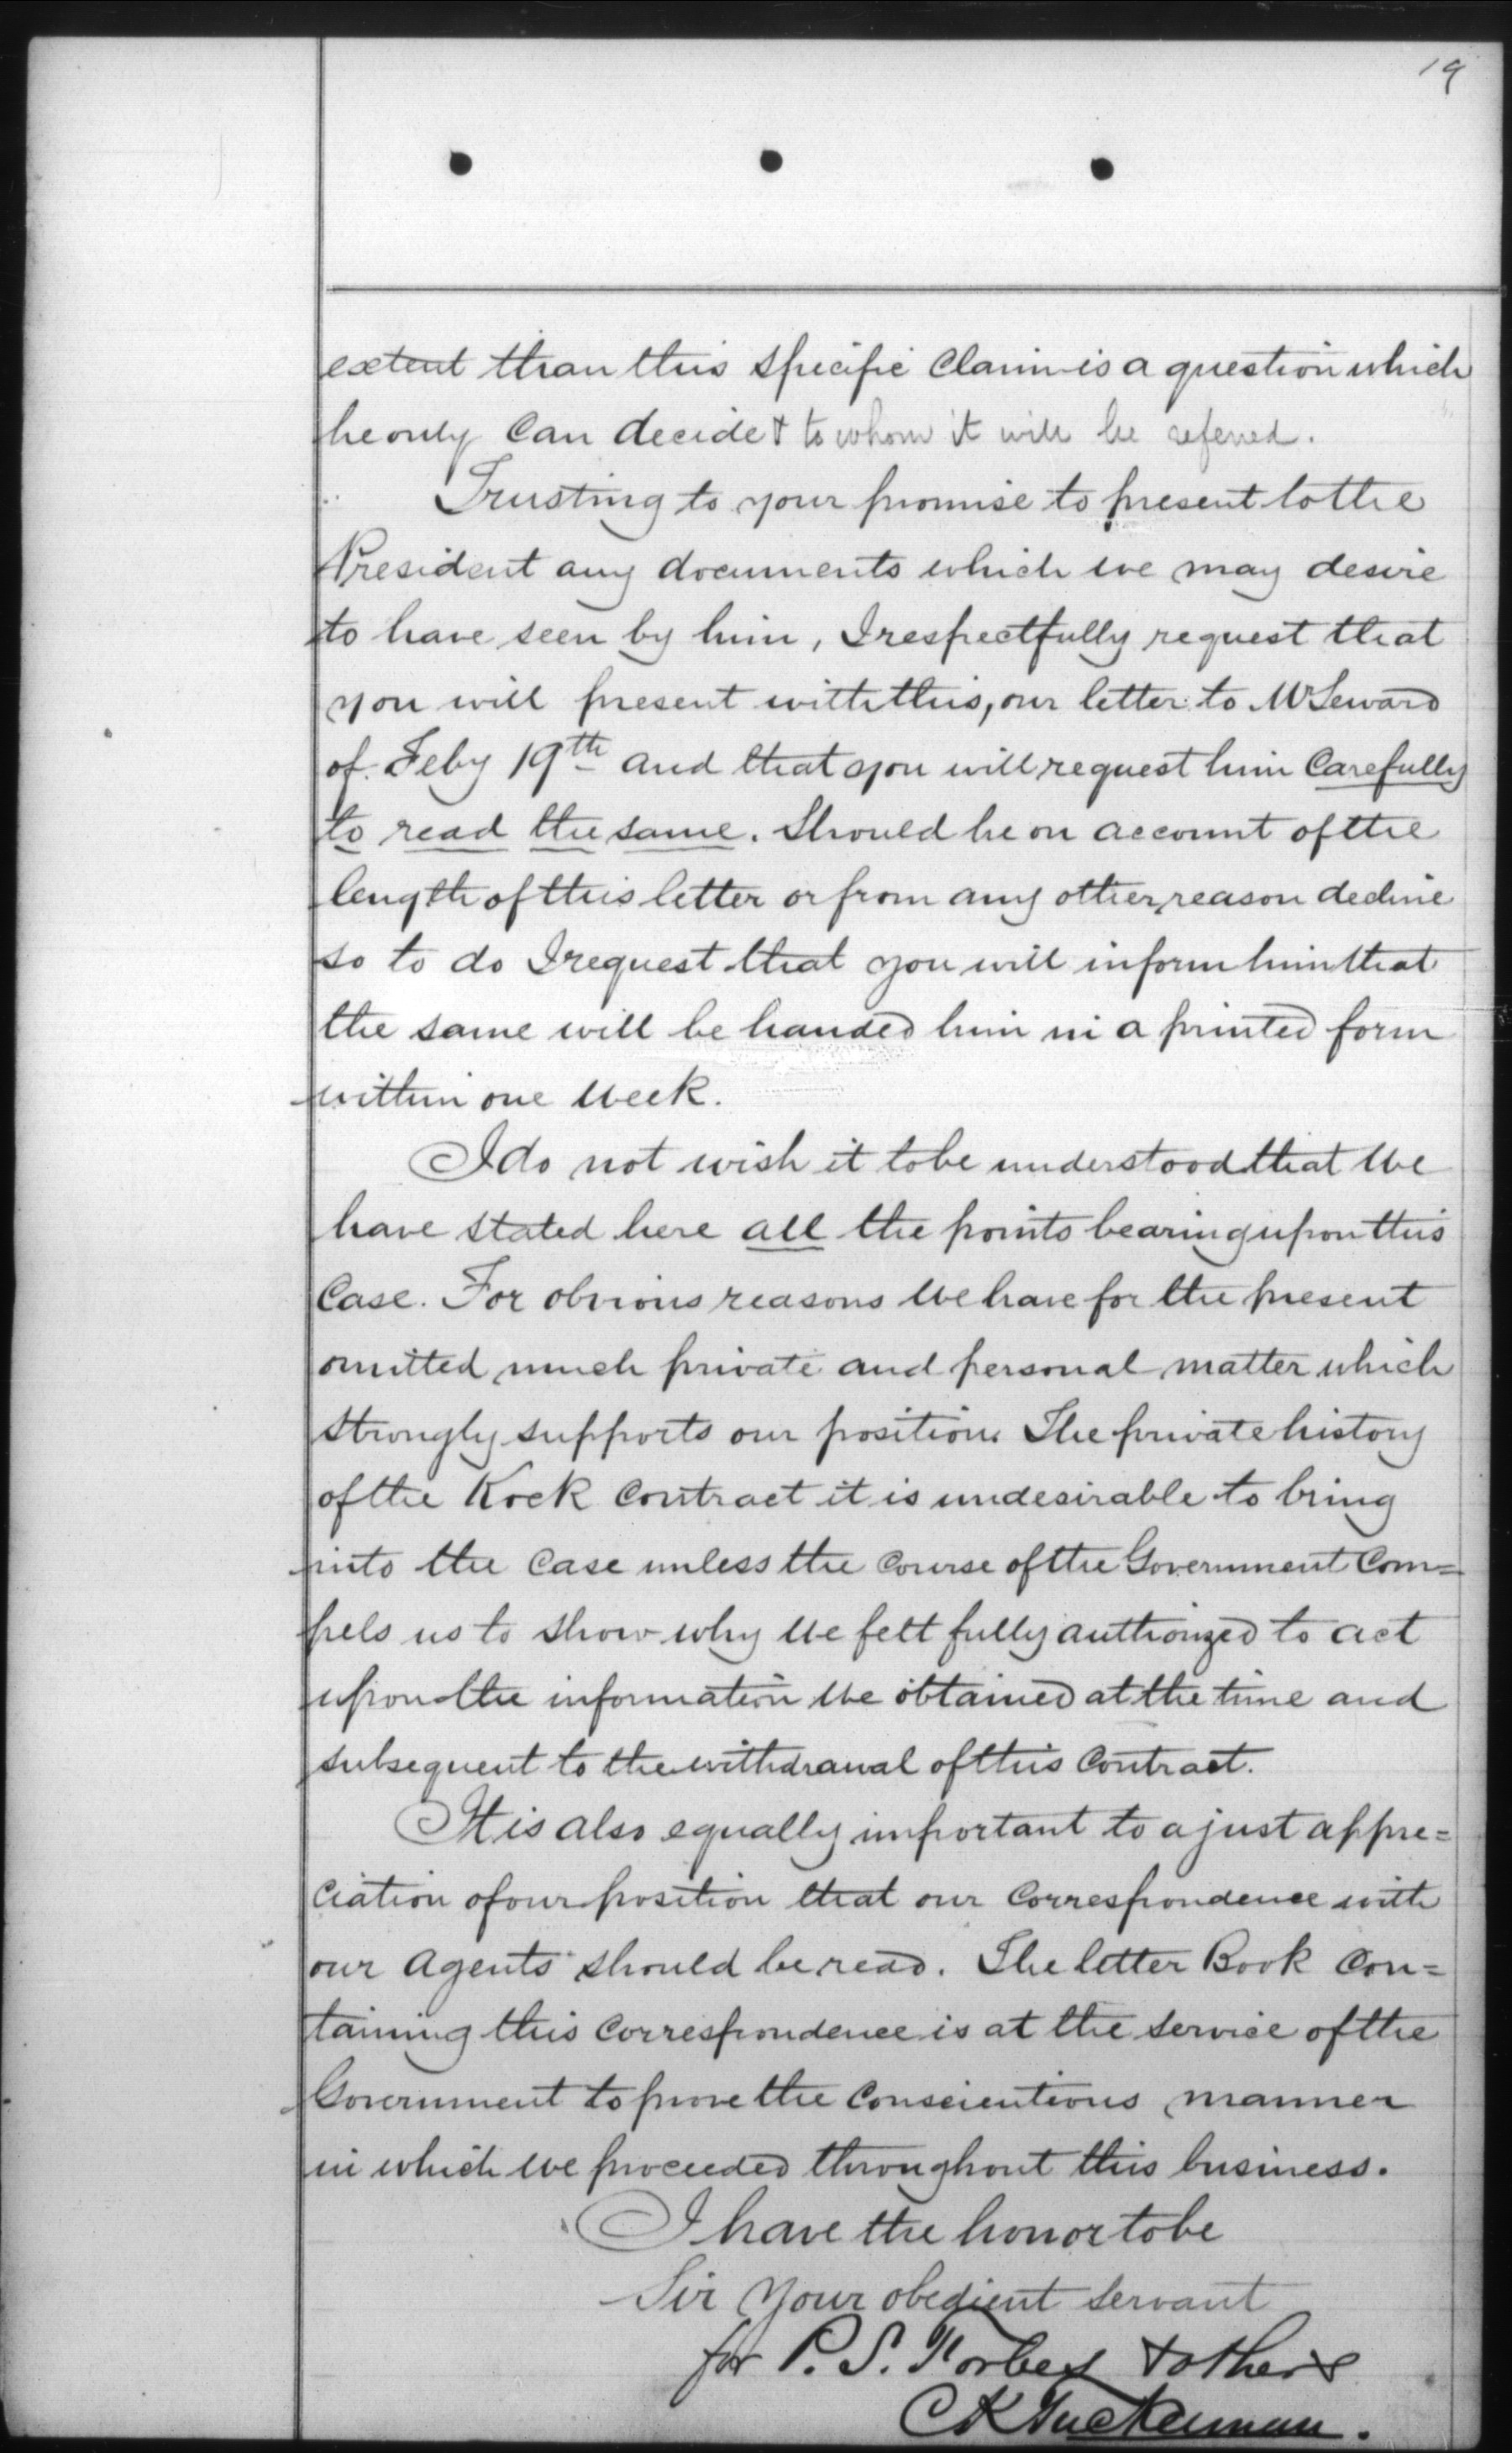 19
extent than this specific Claim is a question which
he only Can decide & to whom it will be referred.
Trusting to your promise to present to the
President any documents which we may desire
to have seen by him, I respectfully request that
you will present with this, our letter to Mr Seward
of Feby 19th and that you will request him Carefully
to read the same. Should he on account of the
length of this letter or from any other reason decline
so to do I request that you will inform him that
the same will be handed him in a printed form
within one week.
I do not wish it to be understood that we
have stated here all the points bearing upon this
Case. For obvious reasons we have for the present
omitted much private and personal matter which
strongly supports our position. The private history
of the Kock Contract it is undesirable to bring
into the Case unless the Course of the Government Com=
pels us to show why we felt fully authorized to act
upon the information we obtained at the time and
subsequent to the withdrawal of this Contract.
It is also equally important to a just appre=
ciation of our position that our Correspondence with
our Agents should be read. The letter Book Con=
taining this Correspondence is at the service of the
Government to prove the Conscientious manner
in which we proceeded throughout this business.
I have the honor to be
Sir Your obedient servant
for P. S. Forbes & others
C K Tuckerman.